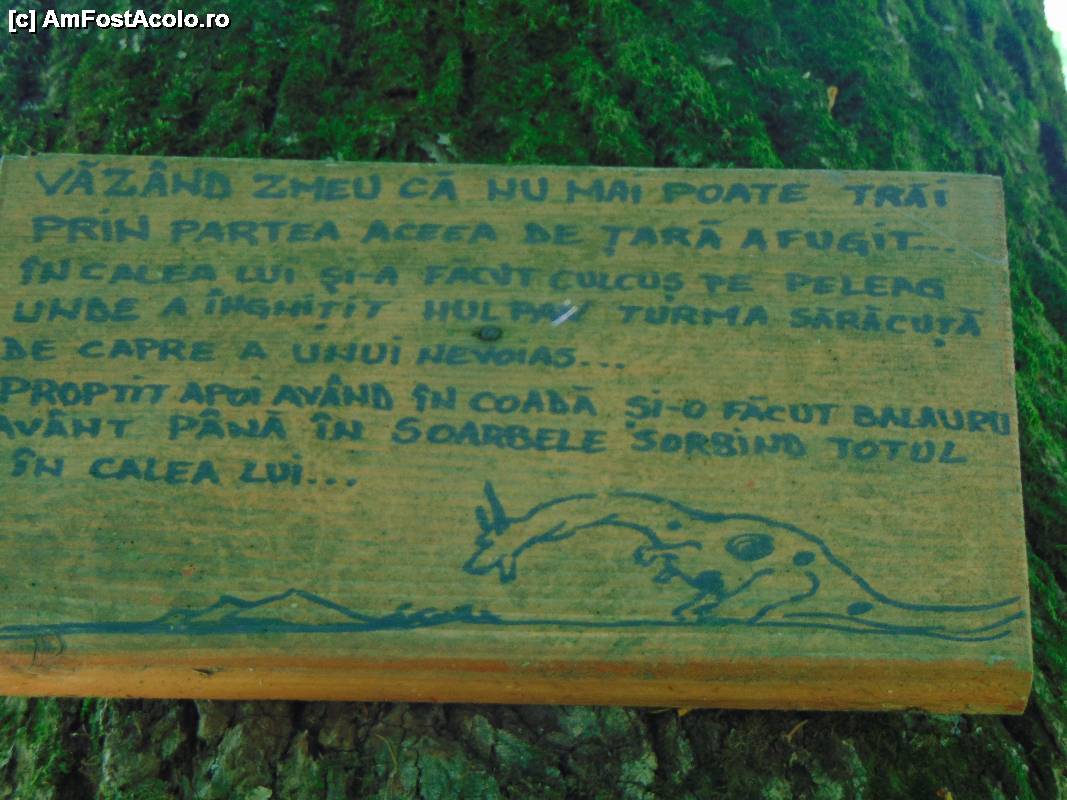 [c] AmFostAcolo.ro
VĂZÂND ZMEU CĂ NU MAI POATE TRĂI
PRIN PARTEA ACEEA DE ȚARĂ A FUGIT...
ÎN CALEA LUI ȘI-A FĂCUT CULCUȘ PE PELEAG
UNDE A ÎNGHIȚIT HULPAV TURMA SĂRĂCUȚĂ
DE CAPRE A UNUI NEVOIAS...
PROPTIT APOI AVÂND ÎN COADĂ ȘI-O FĂCUT BALAURU
AVÂNT PÂNĂ ÎN SOARBELE SORBIND TOTUL
ÎN CALEA LUI...